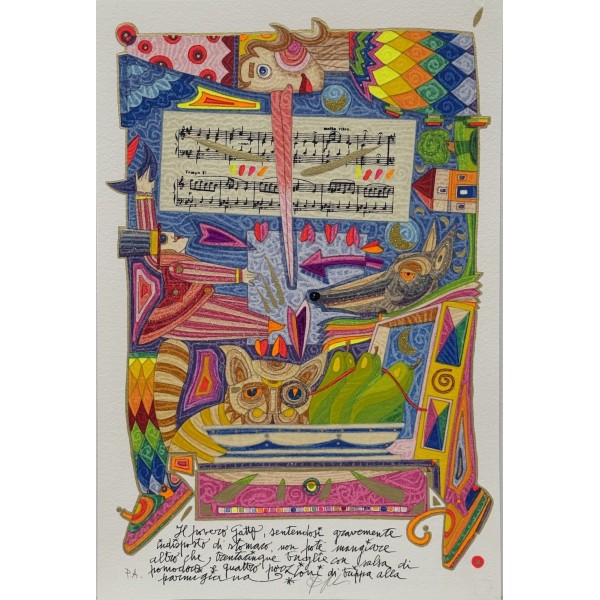 molto vivo
Tempo I°
Il povero Gatto, sentendosi gravemente
indisposto di stomaco, non poté mangiare
altro che trentacinque triglie con salsa di
pomodoro e quattro porzioni di trippa alla
parmigiana
P.A.